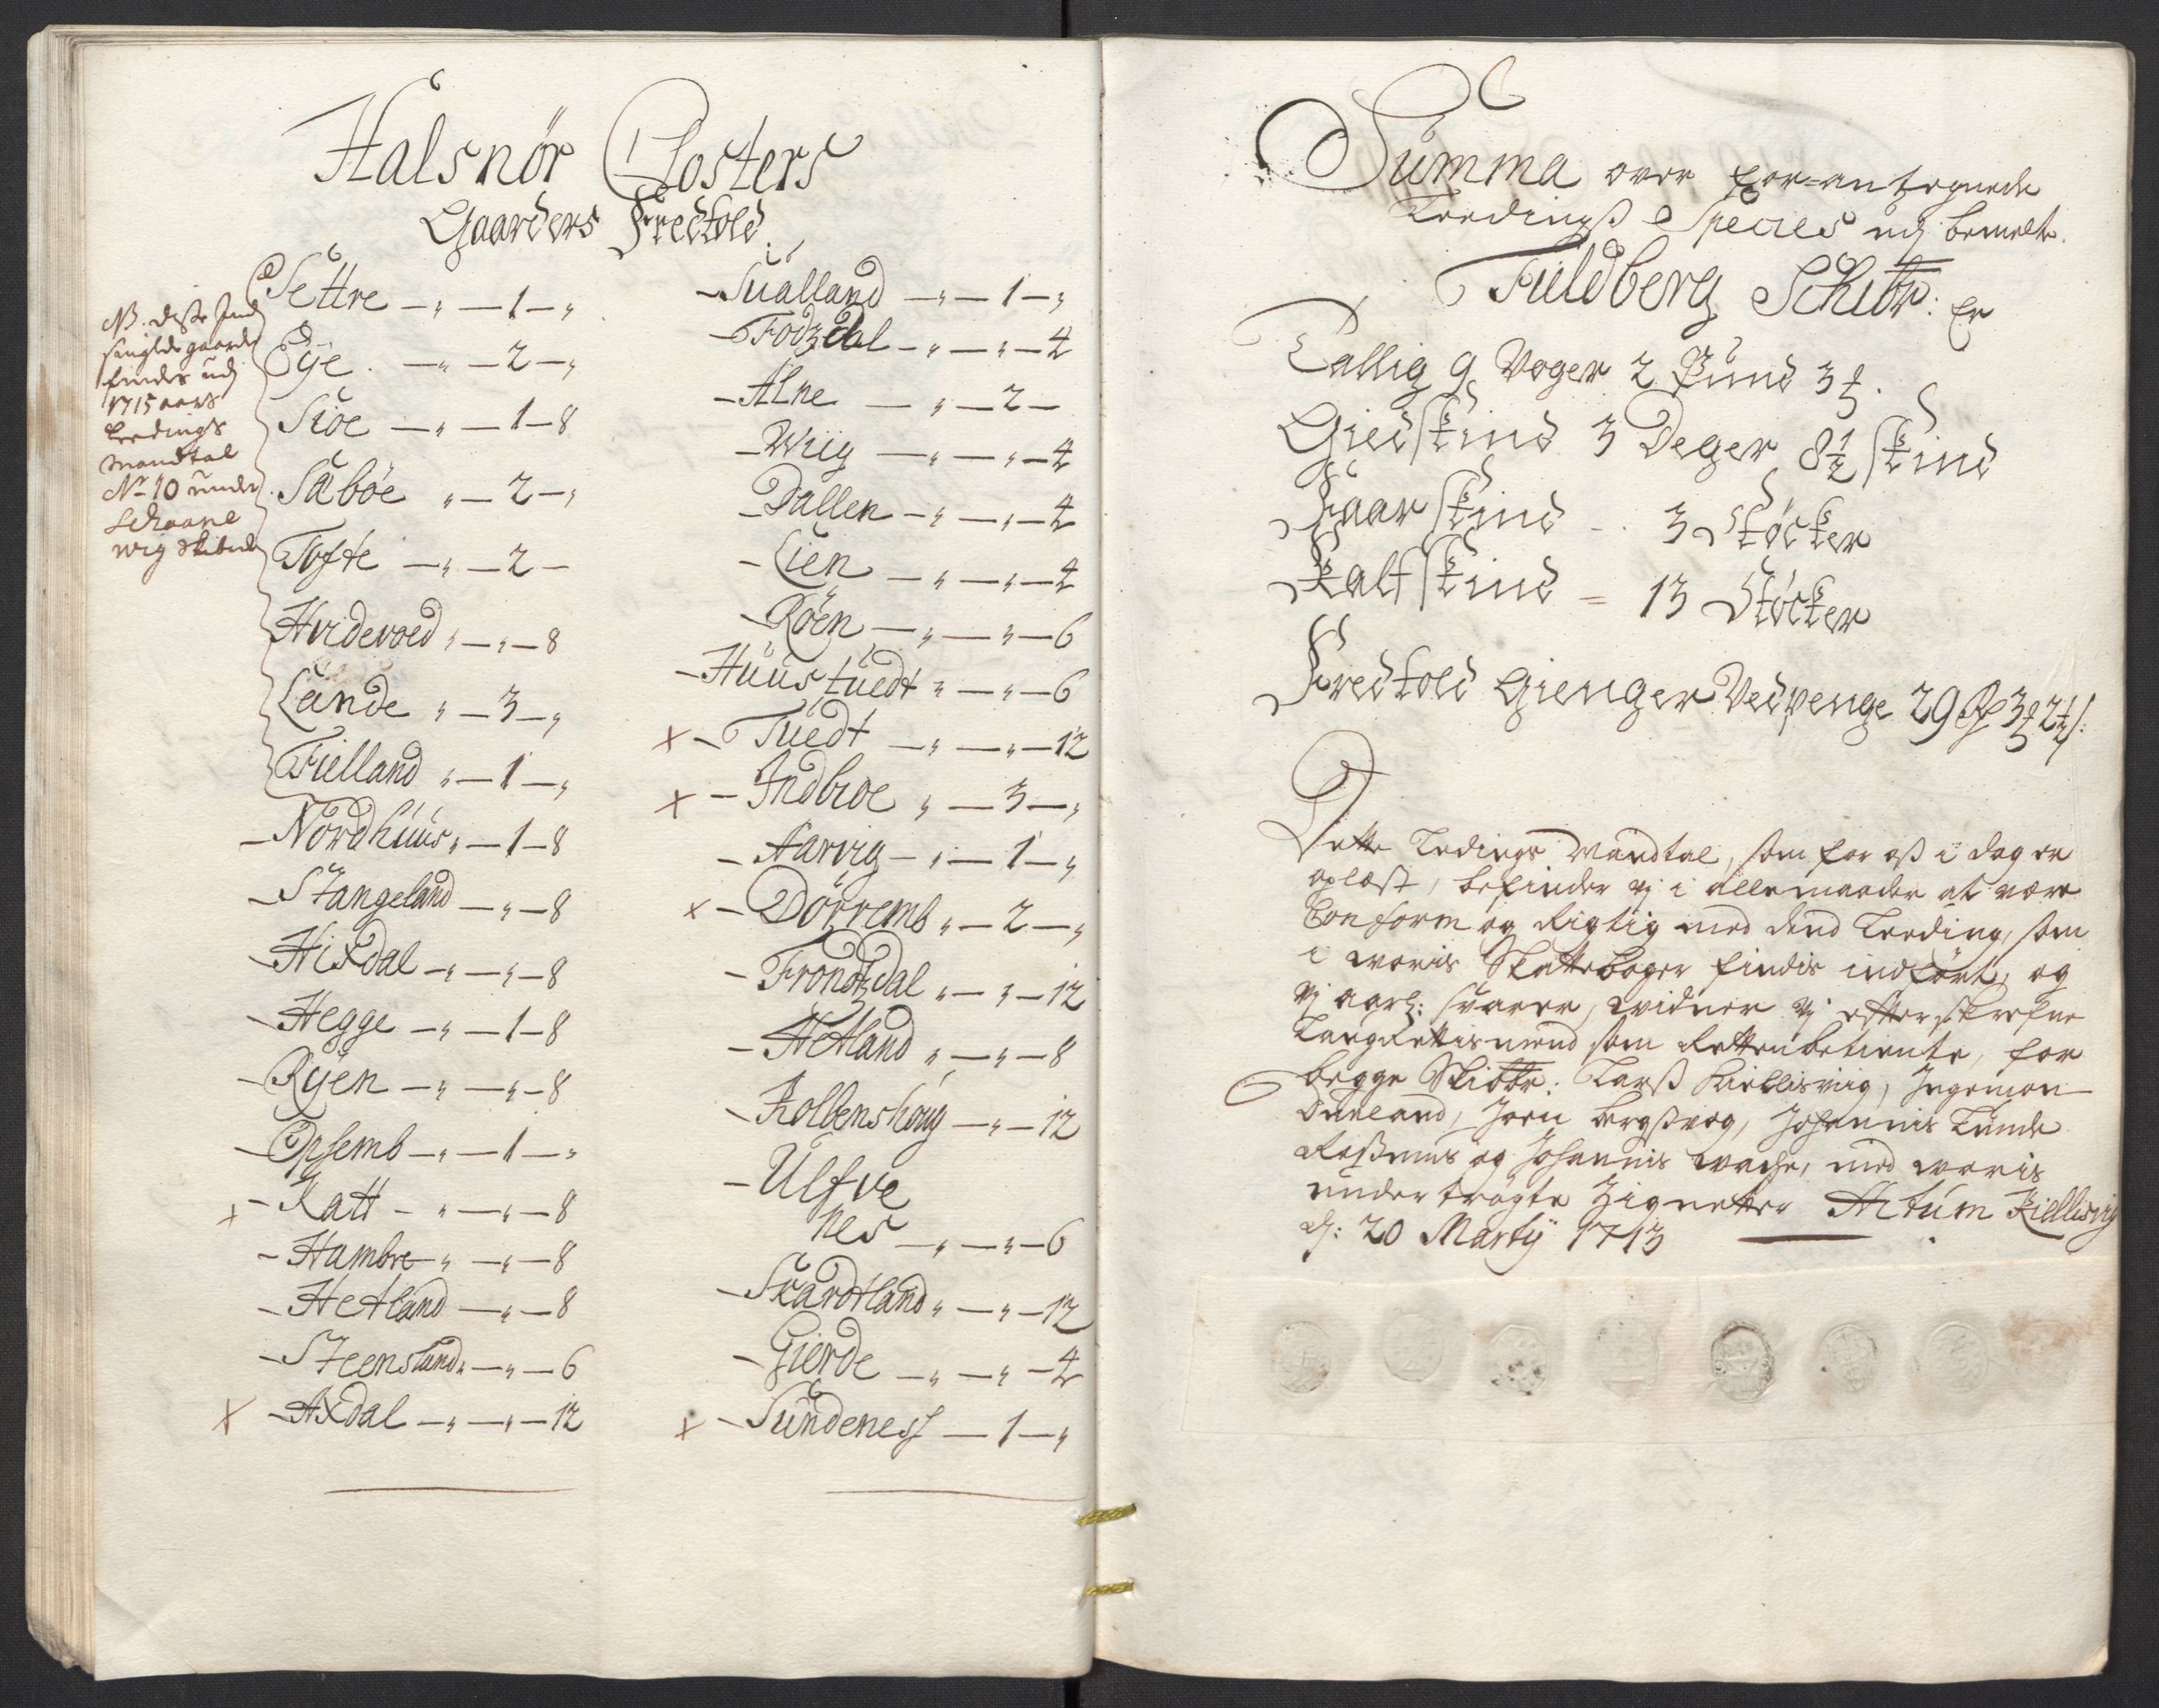 Halsnör Closters
Gaarders Frectold
NB. disse Ind
finder udj
1715 aars
Leedings
Mandtal
No 10 under
Schaane
wig Skibrede
Settre — „ — 1 — „
Øye — „ — 2 — „
Siöe — „ — 1 — 8
Säböe „ — 2 — „
Tofte — „ — 2 —
Hvidevoed „ — „ — 8
Lande „ — 3 — „
Fielland „ — 1 — „
— Nordhuus „ — 1 — 8
— Stangeland — „ — 8
— Hixdal — „ — „ — 8
— Hegge — „ — 1 — 8
— Ryen — „ — „ — 8
— Opsemb — „ — 1 — „
x — Katt — „ — „ — 8
— Hambre — „ — „ — 8
— Hetland — „ — 8
— Steensland „ — „ — 6
x — Axdal — „ — „ — 12
— Sualland — „ — 1 — „
— Fodzdal — „ — „ — 4
— Alne — „ — 2 —
— Wiig — „ — „ — 4
— Dallen — „ — „ — 4
— Lien — „ — „ — 4
— Röen — „ — „ — 6
— Huustuedt „ — „ — 6
x — Tuedt — „ — „ — 12
x — Indbioe „ — 3 — „
— Aarvig — „ — 1 — „
x — Dörremb „ — 2 — „
— Frondtzdal „ — „ — 12
— Hetland „ — „ — 8
— Kolbenshoug — „ — 12
— Ulfve
nes — „ — „ — 6
— Skardtland „ — „ — 12
— Gierde — „ — „ — 4
x — Sundeness — 1 — „
Summa over for=antegnede
Leedingß Species udj bemelte
Fieldberg Schibr: Er
Tallig 9 Voger 2 Pund 3
Giedskind 3 Deger 8½ skind
Faarskind .. 3 Støcker
Kalfskind = 13 Støcker
Frectold Gienger Vedpenge 29
Dette Ledings Mandtal, som for oß i dag er
oplæst, befinder vj i alle maader at være
Conform og Rigtig med dend Leeding, som
i woris Skattebøger findis indført, og
vj aarl: svarer, widner vj effterskrefne
Laugrettismend som Rettenbetiente, for
begge Skibbr: Larß Kiellisviig, Ingemon
Johannis Tunde
og Johannis wache, med woris
undertrögte Zignetter Actum Kiellisvig
d: 20 Martij 1713